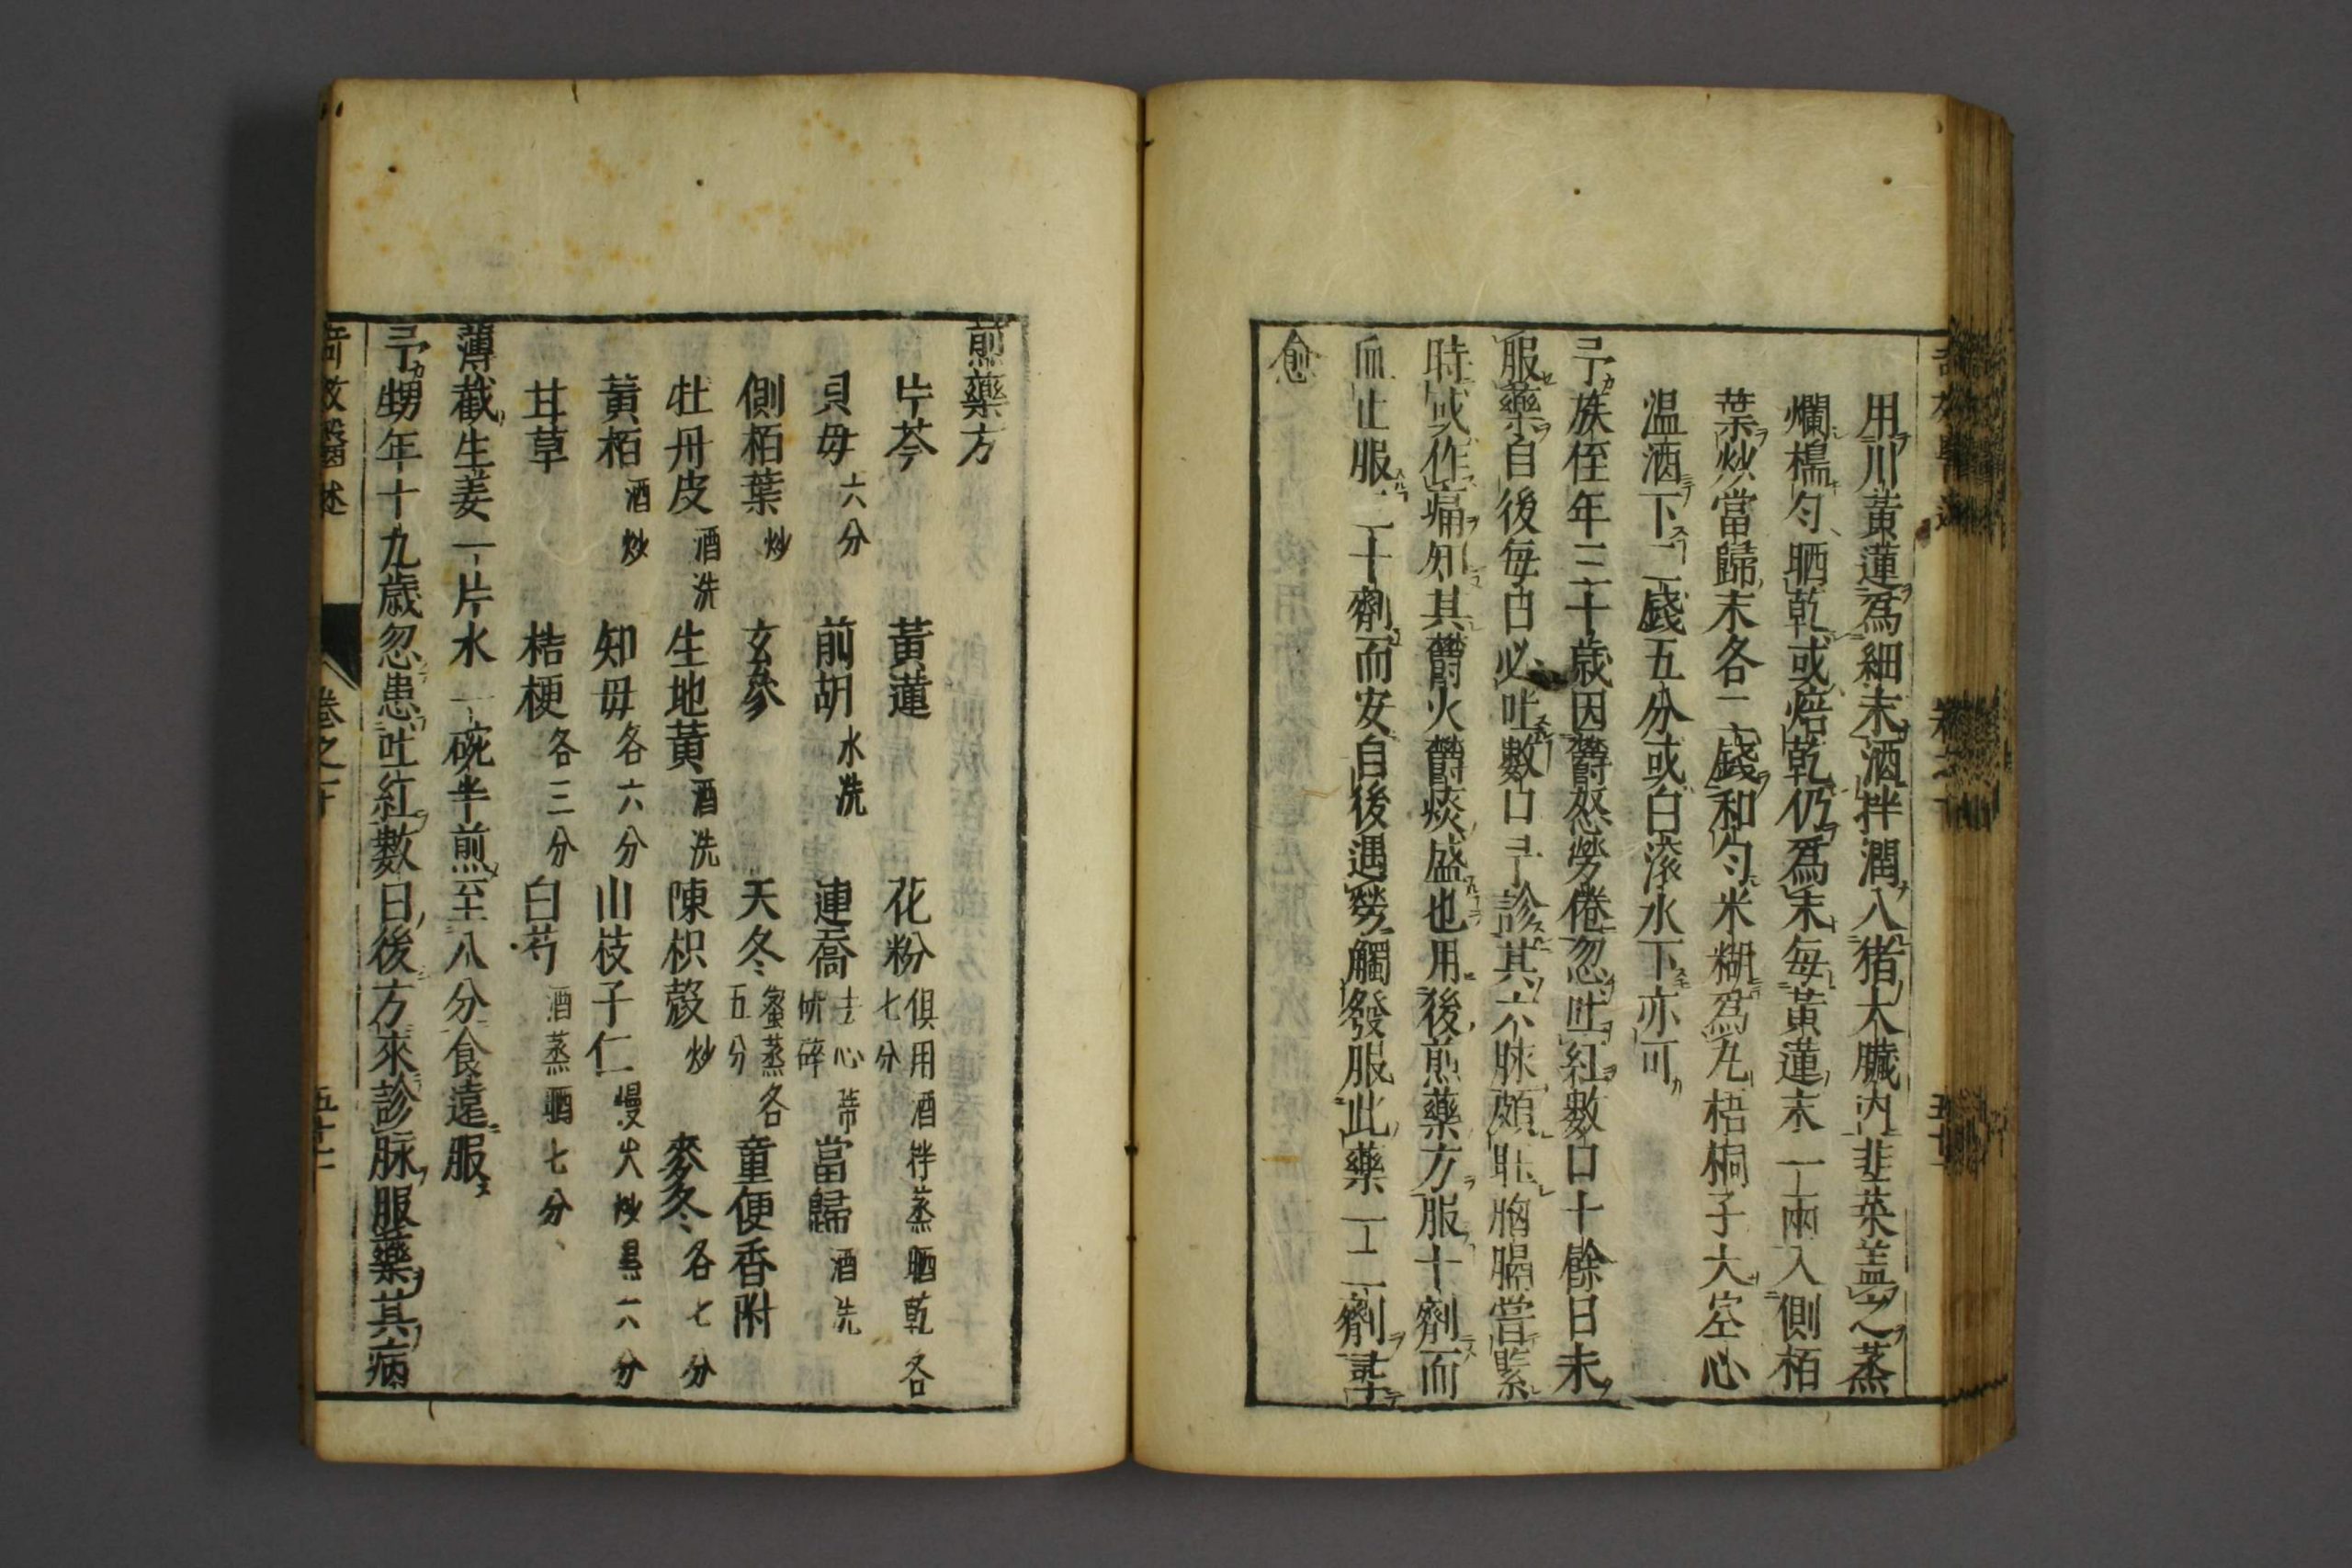 用川黃蓮爲細末酒拌潤入猪大臓内韭菜盖之蒸
爛檮匀晒乾或焙乾仍爲末毎黃蓮末一兩入側栢
葉炒當歸末各二錢和匀米糊爲丸梧桐子大空心
温酒下二錢五分或白滚水下亦可
予族侄年三十歳因欝怒勞倦忽吐紅數口十餘日未
服藥自後毎日必吐數口予診其六脉頗駃胸膈嘗緊
時或作痛知其欝火欝痰盛也用後煎藥方服十劑而
血止服二十劑而安自後遇勞觸發服此藥一二劑
愈
煎藥方
片芩 黃蓮 花粉 俱用酒拌蒸晒乾各七分
貝毋 六分 前胡 水洗 連喬 去心蒂研碎 當歸 酒洗
側栢葉 炒 玄參 天冬 蜜蒸各五分 童便香附
牡丹皮 酒洗 生地黃 酒洗 陳枳殼 炒 麥冬 各七分
黃栢 酒炒 知毋 各六分 山枝子仁 慢火炒黑六分
甘草 桔梗 各三分 白芍 酒蒸晒七分
薄截生姜一片水一碗半煎至八分食遠服
予甥年十九歳忽患吐紅數日後方來診脉服藥其病
竒效醫述 卷之二十 五十二